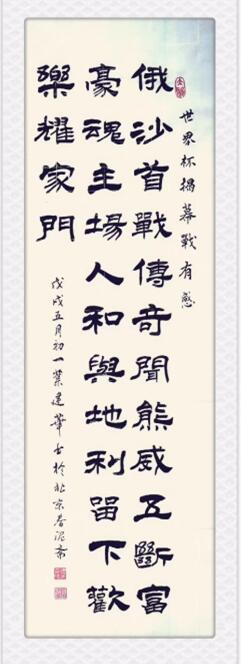 世界杯揭幕戰有感
俄沙首戰傳奇聞熊威五斷富
豪魂主場人和與地利留下歡
樂耀家門
戊戌五月初一建華書於北京春泥斋